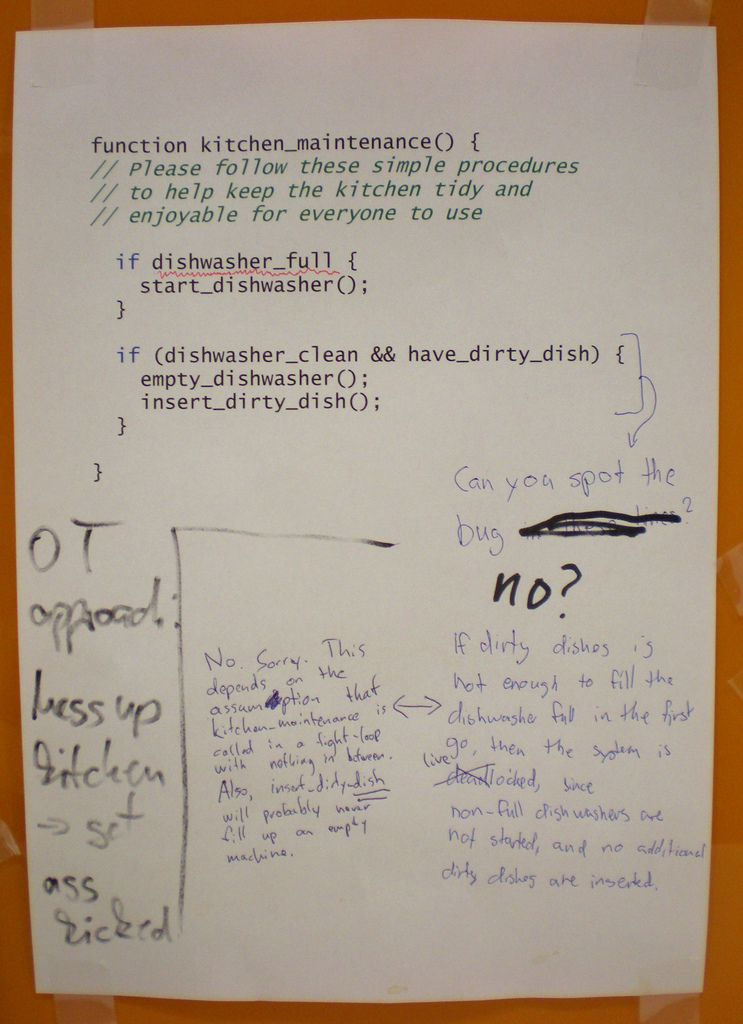 function kitchen_maintenance() {
// Please follow these simple procedures
// to help keep the kitchen tidy and
// enjoyable for everyone to use
if dishwasher_full {
start_dishwasher();
}
if (dishwasher_clean && have_dirty_dish) {
empty_dishwasher();
insert_dirty_dish();
}
}
Can you spot the
bug in these lines?
no?
If dirty dishes is
not enough to fill the
dishwasher full in the first
go, then the system is
live deadlocked, since
non-full dishwashers are
not started, and no additional
dirty dishes are inserted.
No. Sorry. This
depends on the
assumption that
kitchen_maintenance is
called in a tight-loop
with nothing in between.
Also, insert_dirty_dish
will probably never
fill up an empty
machine.
OT
approach:
mess up
kitchen
→ get
ass
kicked